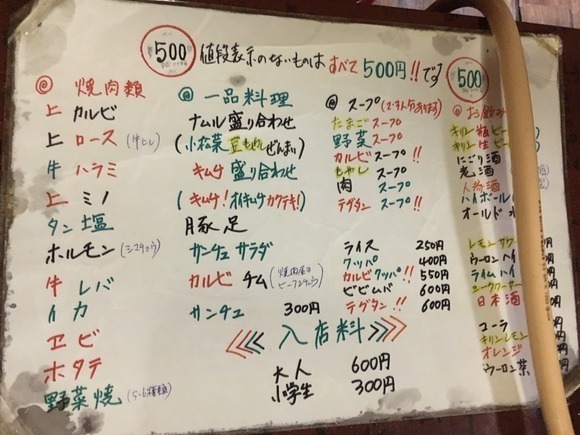 500
値段表示のないものは すべて 500円!! です
500
◎ 焼肉類
上 カルビ
上 ロース
牛 ハラミ
上 ミノ
タン 塩
ホルモン
牛 レバ
イカ
エビ
ホタテ
野菜焼
◎ 一品料理
ナムル 盛り合わせ
(小松菜 豆もやし ぜんまい)
キムチ 盛り合わせ
(キムチ! オイキムチ カクテキ!)
豚足
サンチュ サラダ
カルビ チム
サンチュ 300円
◎ スープ
たまご スープ
野菜 スープ
カルビ スープ
もやし スープ
肉 スープ
テグタン スープ!!
ライス 250円
クッパ 400円
カルビクッパ!! 550円
ビビムバ 600円
テグタン!! 600円
キリン 瓶 ビー
キリン 生 ビー
にごり酒
人参酒
ハイボール
オールド
レモン サワー
ウーロン ハイ
ライム ハイ
日本酒
コーラ
キリンレモン
オレンジ
ウーロン茶
入店料
大人 600円
小学生 300円